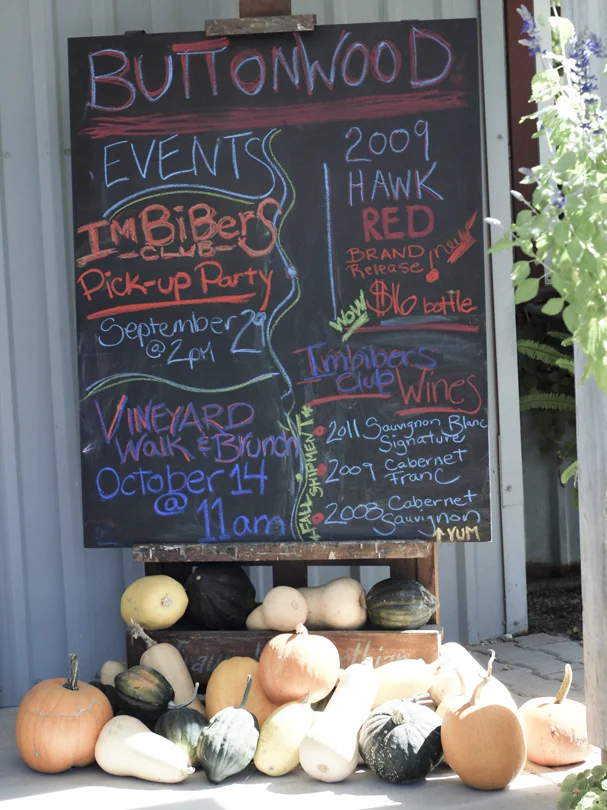 BUTTONWOOD
EVENTS
IMBiBERS
-CLUB-
Pick-up Party
September 29
@ 2pm
VINEYARD
Walk & Brunch
October 14
@
11am
2009
HAWK
RED
BRAND new!
Release
WOW $16 bottle
Impibers
Club Wines
*FALL SHIPMENT*
2011 Sauvignon Blanc
Signature
2009 Cabernet
Franc
2008 Cabernet
Sauvignon
↑YUM